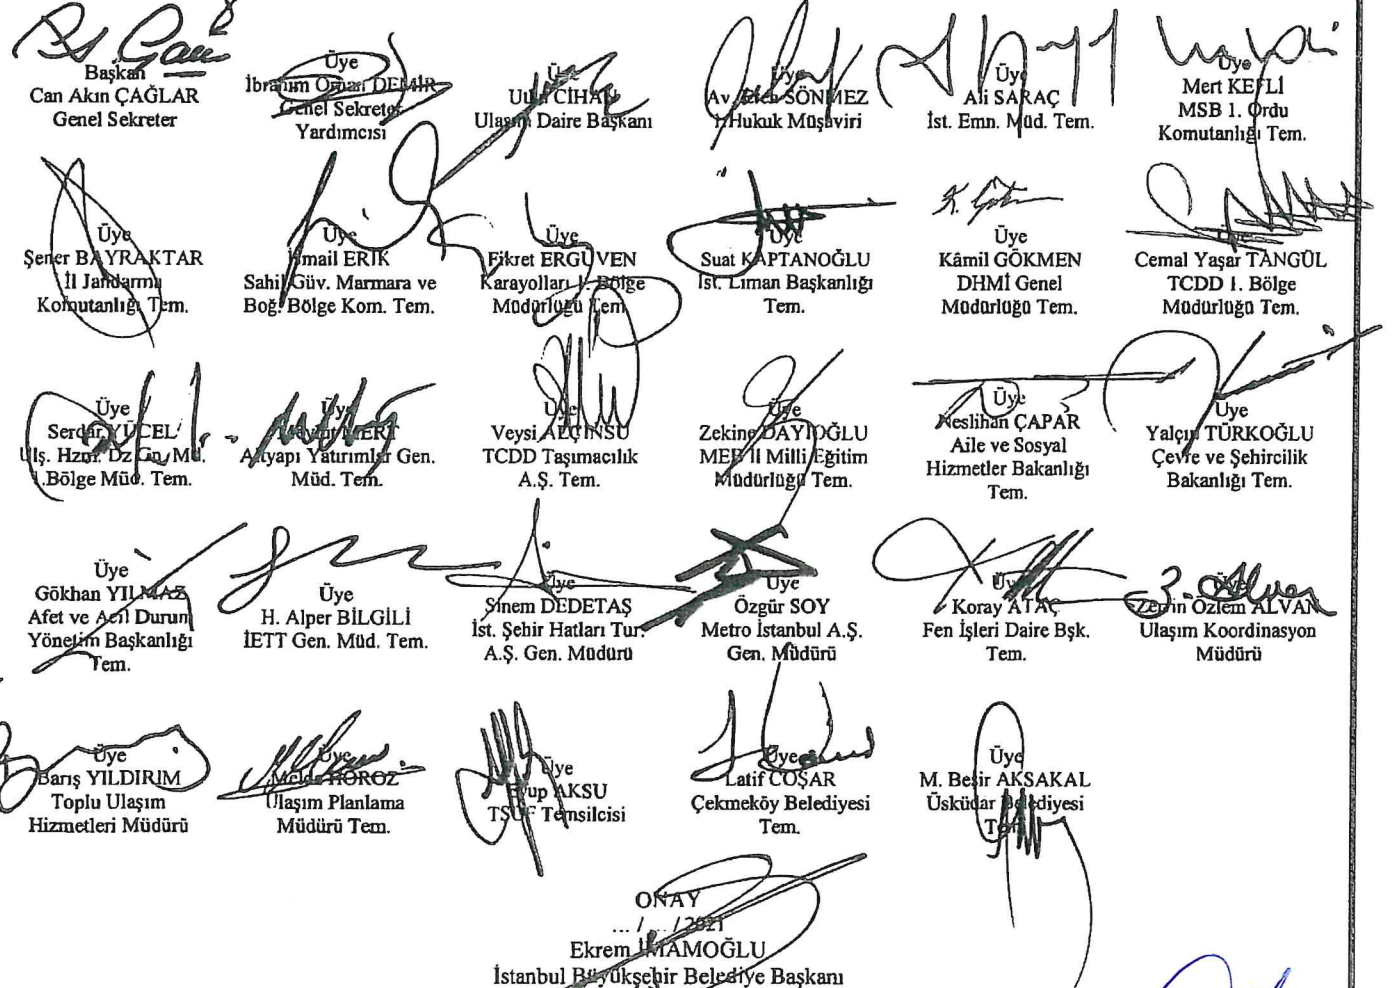 Başkan
Can Akın ÇAĞLAR
Genel Sekreter
Üye
İbrahim Orhan DEMİR
Genel Sekreter
Yardımcısı
Üye
Utku CİHAN
Ulaşım Daire Başkanı
Üye
Av. Eren SÖNMEZ
1.Hukuk Müşaviri
Üye
Ali SARAÇ
İst. Emn. Müd. Tem.
Üye
Mert KEFLİ
MSB 1. Ordu
Komutanlığı Tem.
Üye
Şener BAYRAKTAR
İl Jandarma
Komutanlığı Tem.
Üye
İsmail ERIK
Sahil Güv. Marmara ve
Boğ. Bölge Kom. Tem.
Üye
Fikret ERGÜVEN
Karayolları 1. Bölge
Müdürlüğü Tem.
Üye
Suat KAPTANOĞLU
İst. Liman Başkanlığı
Tem.
K. Gök
Üye
Kâmil GÖKMEN
DHMİ Genel
Müdürlüğü Tem.
Üye
Cemal Yaşar TANGÜL
TCDD 1. Bölge
Müdürlüğü Tem.
Üye
Serdar YÜCEL
Ulş. Hzm. Dz Gn. Md.
1.Bölge Müd. Tem.
Üye
MERT
Altyapı Yatırımlar Gen.
Müd. Tem.
Üye
Veysi ALÇINSU
TCDD Taşımacılık
A.Ş. Tem.
Üye
Zekine DAYIOĞLU
MEB İl Milli Eğitim
Müdürlüğü Tem.
Üye
Neslihan ÇAPAR
Aile ve Sosyal
Hizmetler Bakanlığı
Tem.
Üye
Yalçın TÜRKOĞLU
Çevre ve Şehircilik
Bakanlığı Tem.
Üye
Gökhan YILMAZ
Afet ve Acil Durum
Yönetim Başkanlığı
Tem.
Üye
H. Alper BİLGİLİ
İETT Gen. Müd. Tem.
Üye
Sinem DEDETAŞ
İst. Şehir Hatları Tur.
A.Ş. Gen. Müdürü
Üye
Özgür SOY
Metro İstanbul A.Ş.
Gen. Müdürü
Üye
Koray ATAÇ
Fen İşleri Daire Bşk.
Tem.
Üye
Zerrin Özlem ALVAN
Ulaşım Koordinasyon
Müdürü
Üye
Barış YILDIRIM
Toplu Ulaşım
Hizmetleri Müdürü
Üye
Melda HOROZ
Ulaşım Planlama
Müdürü Tem.
Üye
Eyup AKSU
TŞOF Temsilcisi
Üye
Latif COŞAR
Çekmeköy Belediyesi
Tem.
Üye
M. Beşir AKSAKAL
Üsküdar Belediyesi
Tem.
ONAY
... / ... / 2021
Ekrem İMAMOĞLU
İstanbul Büyükşehir Belediye Başkanı